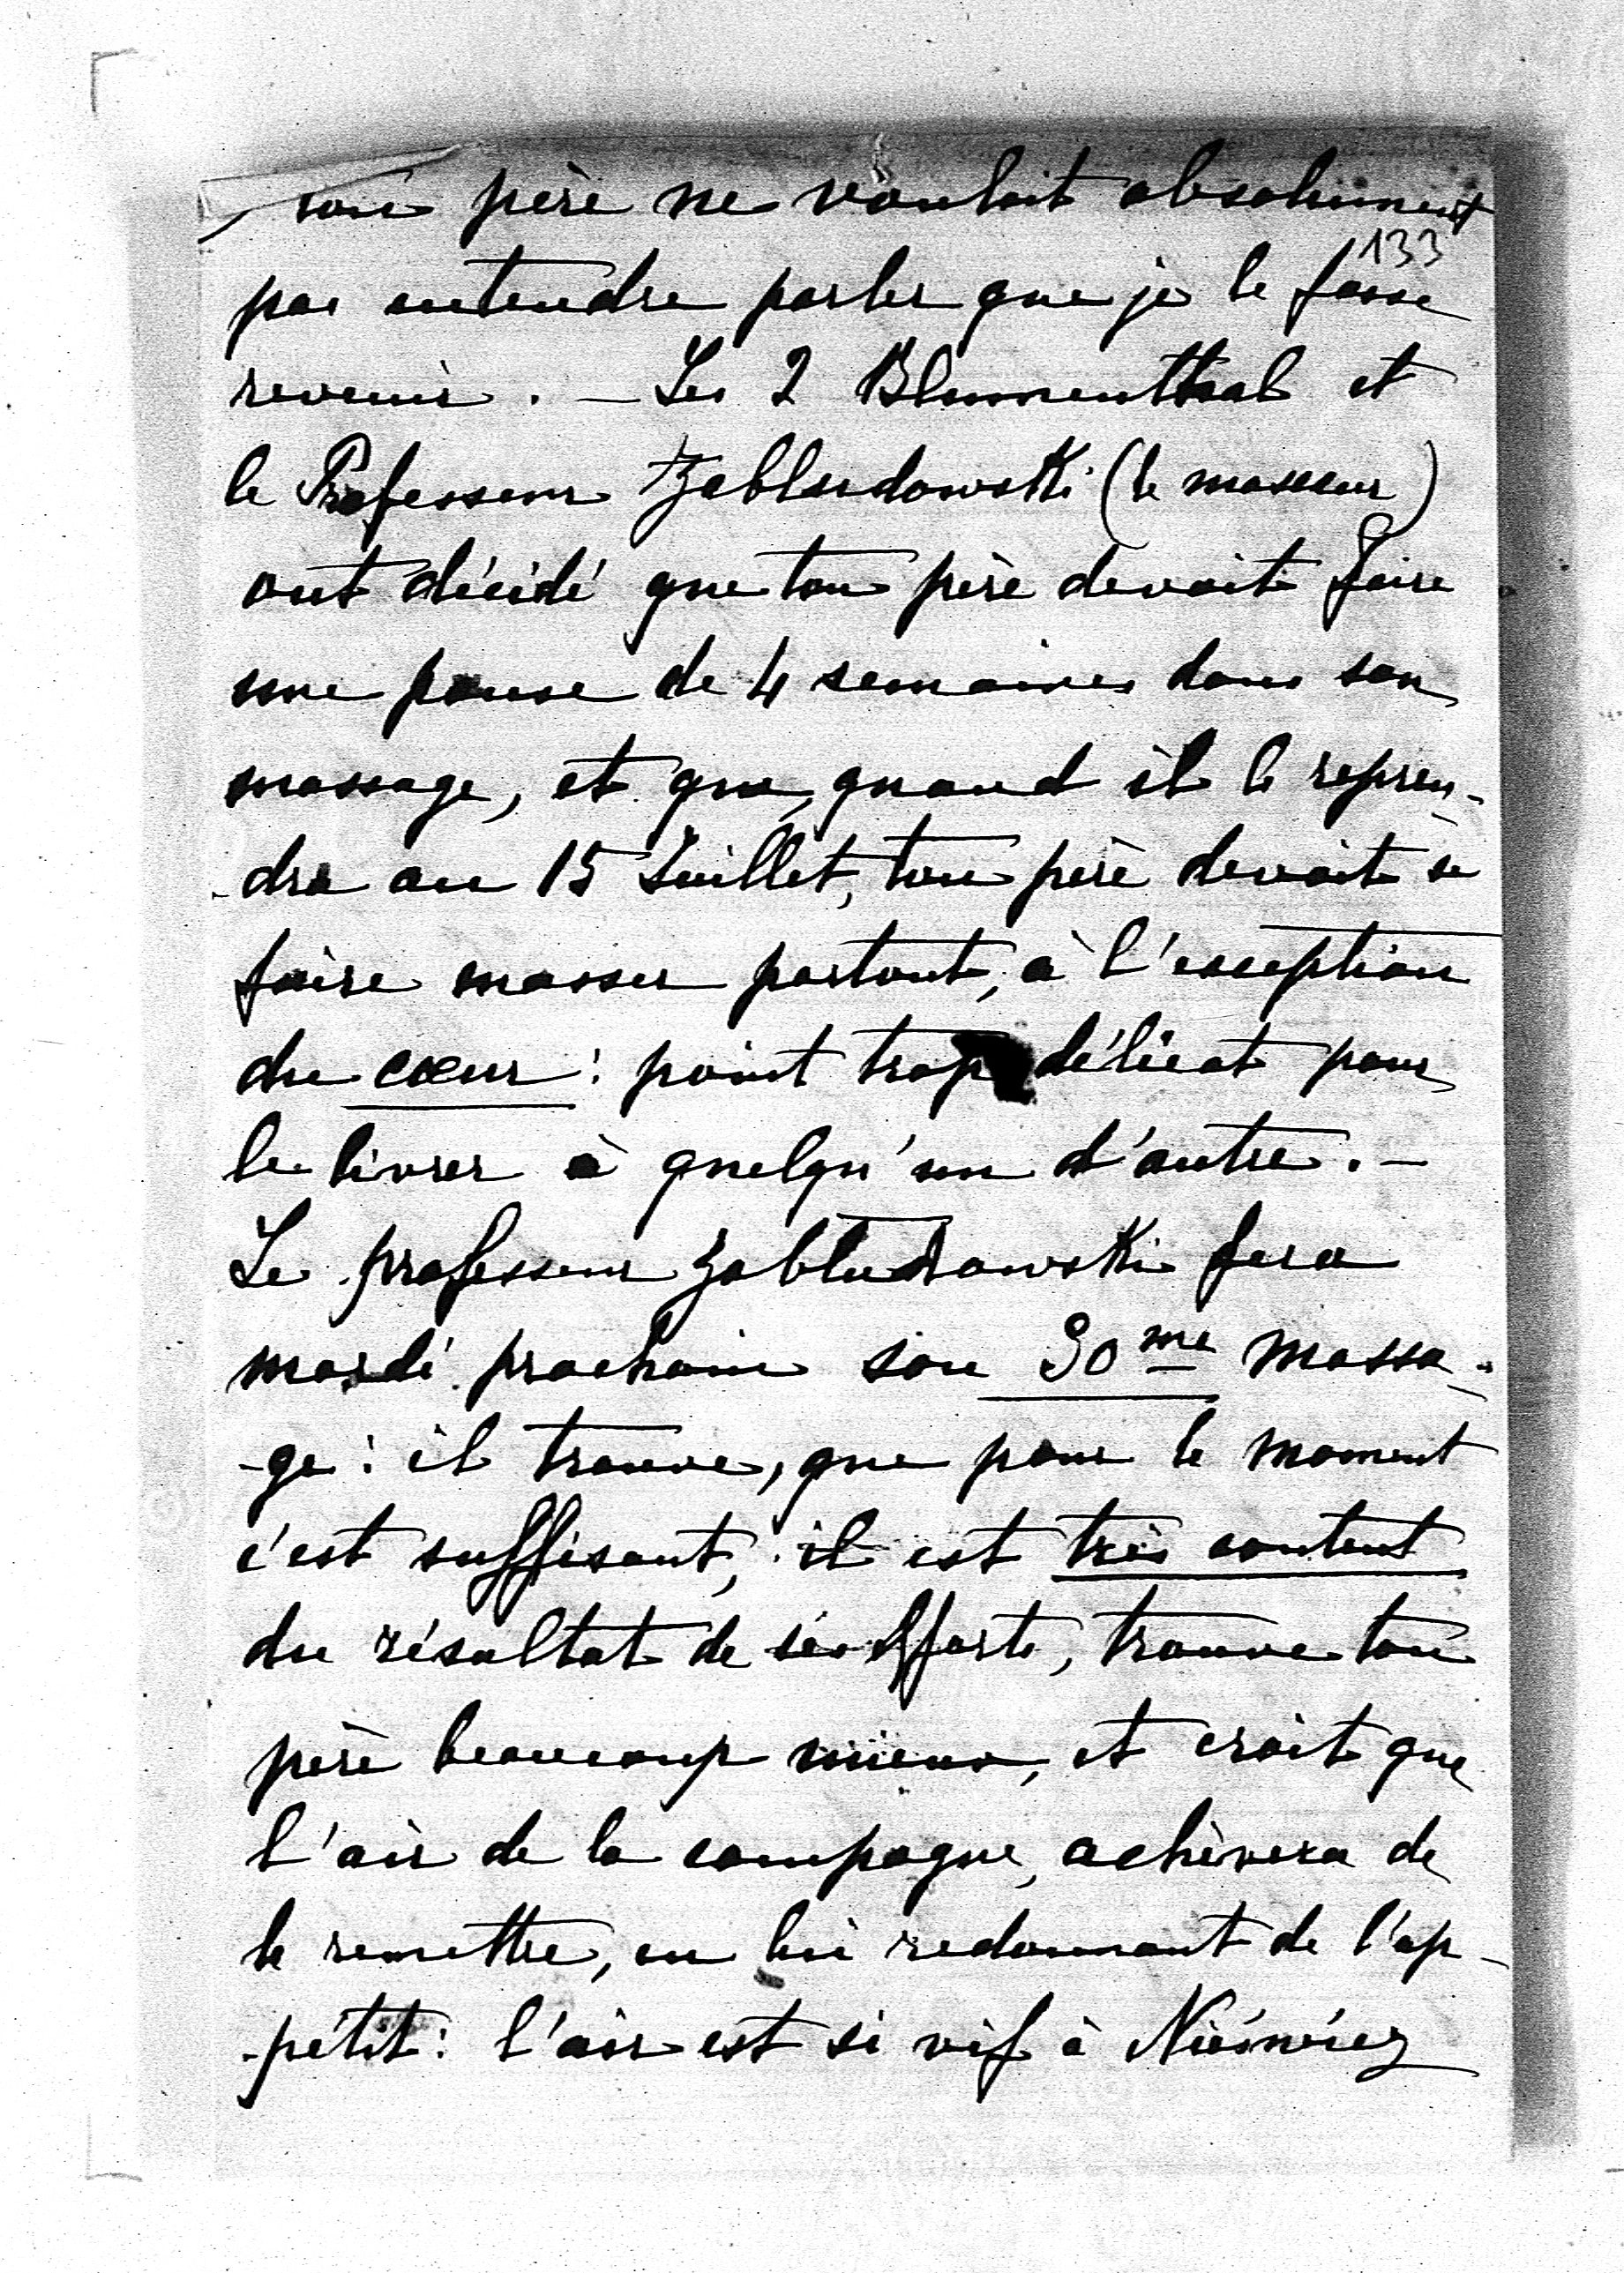 son père ne voulait absolument
133
pas entendre parler que je le fasse
revenir. — Les 2 Blumenthal et
le Professeur Zabludowski (le masseur)
ont décidé que ton père devait faire
une pause de 4 semaines dans son
massage, et que, quand il le repren-
-dra au 15 Juillet, ton père devait se
faire masser partout, à l'exception
du cœur : point trop délicat pour
le livrer à quelqu'un d'autre. —
Le professeur Zabludowski fera
mardi prochain son 90me massa-
-ge : il trouve, que pour le moment
c'est suffisant, il est très content
du résultat de ses efforts, trouve ton
père beaucoup mieux, et croit que
l'air de la campagne, achèvera de
le remettre, en lui redonnant de l'ap-
-pétit : l'air est si vif à Niéświez